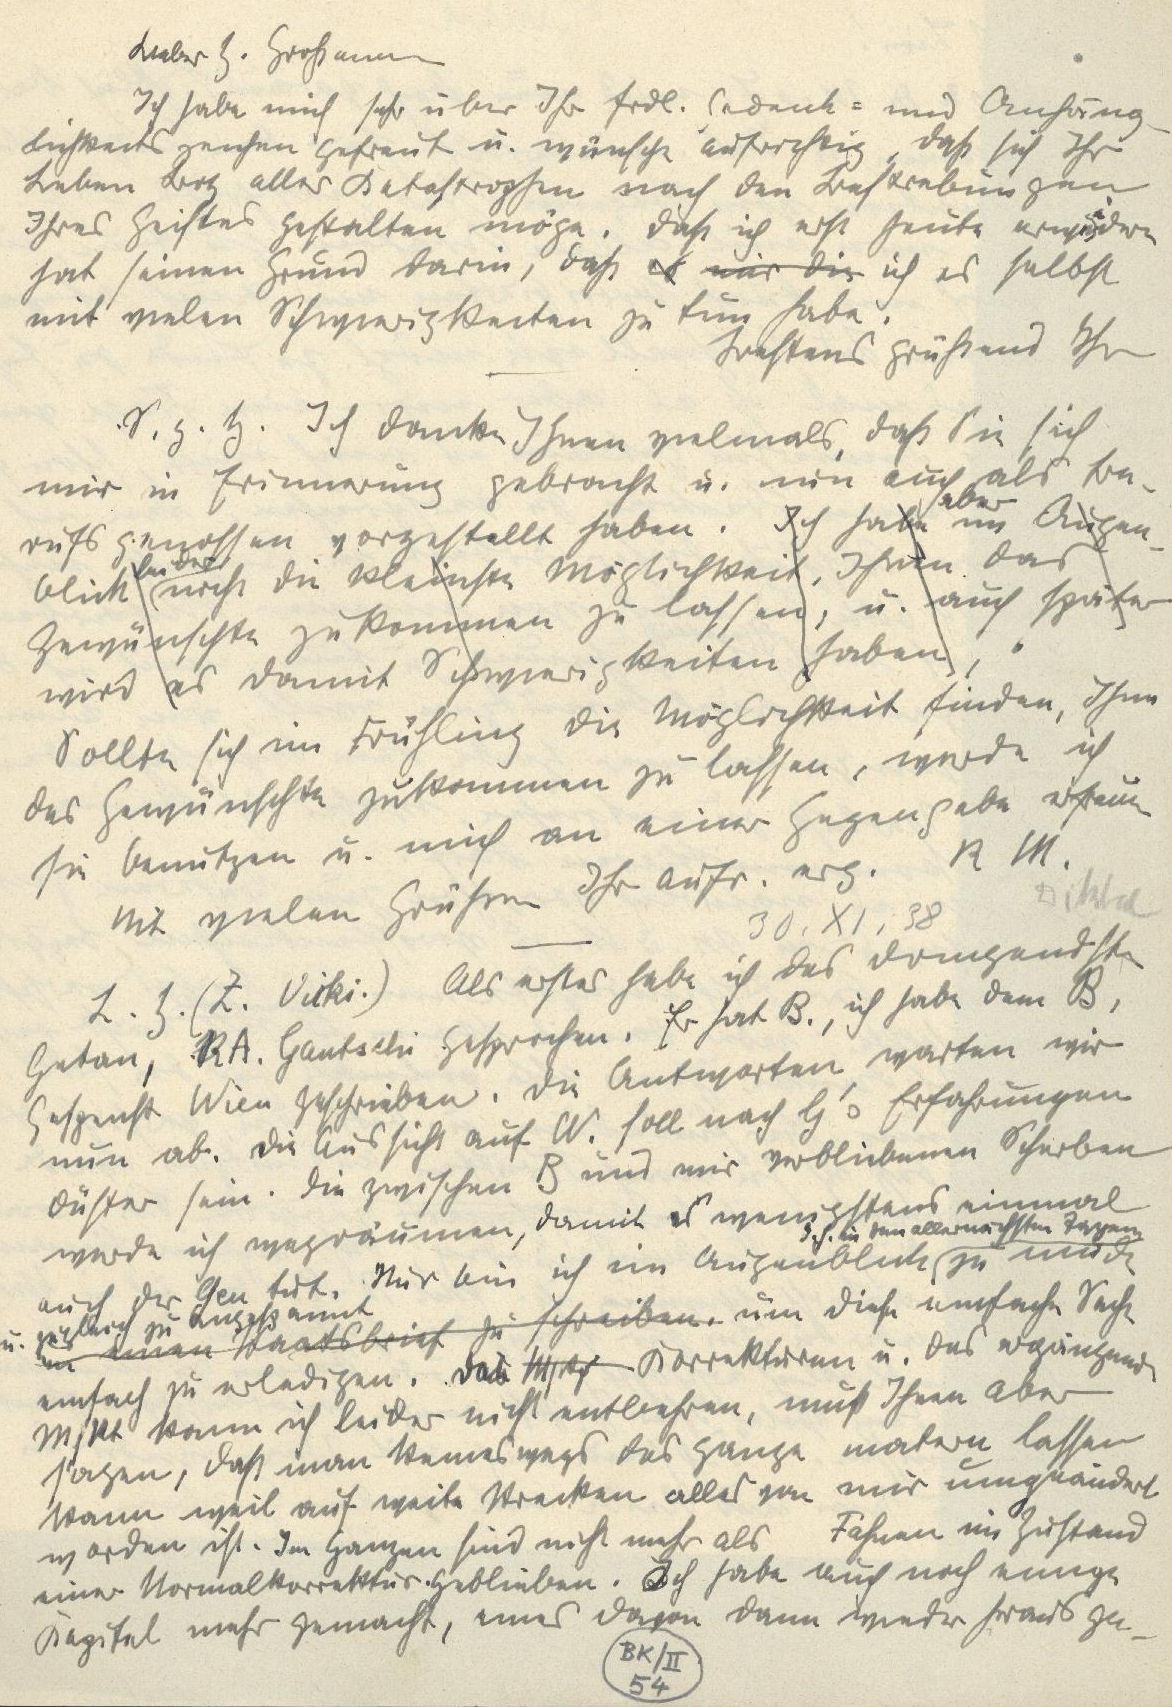 Lieber H. Großmann
Ich habe mich sehr über Ihr frdl. Gedenk= und Anhäng-
lichkeitszeichen gefreut u. wünsche aufrichtig, daß sich Ihr
Leben trotz aller Katastrophen nach den Bestrebungen
Ihres Geistes gestalten möge. Daß ich erst heute erwidere
hat seinen Grund darin, daß es mir die ich es selbst
mit vielen Schwierigkeiten zu tun habe.
Bestens grüßend Ihr
S. g. H. Ich danke Ihnen vielmals, daß Sie sich
mir in Erinnerung gebracht u. nun auch als Be-
rufsgenossen vorgestellt haben. Ich habe aber im Augen-
blick leider nicht die kleinste Möglichkeit, Ihnen das
Gewünschte zukommen zu lassen, u. auch später
wird es damit Schwierigkeiten haben,
Sollte sich im Frühling die Möglichkeit finden, Ihnen
das Gewünschte zukommen zu lassen, werde ich
sie benutzen u. mich an einer Gegengabe erfreun
Mit vielen Grüßen Ihr aufr. erg. R M.
30. XI. 38
L. H. (Z. Vicki.) Als erstes habe ich das Dringendste
getan, RA. Gautschi gesprochen. Er hat B., ich habe dem B,
Gespenst Wien geschrieben. Die Antworten warten wir
nun ab. Die Aussicht auf W. soll nach G's Erfahrungen
düster sein. Die zwischen B und mir verbliebenen Scherben
werde ich wegräumen, damit es wenigstens einmal
d.h. in den allernächsten Tagen
auch der Gen tut. Nur bin ich im Augenblick zu müde
u. zugleich zu angespannt
um einen Staatsbrief zu schreiben. um diese einfache Sache
einfach zu erledigen. Das Mskr Korrekturen u. das ergänzende
Mskt kann ich leider nicht entbehren, muß Ihnen aber
sagen, daß man keineswegs das ganze matern lassen
kann weil auf weite Strecken alles von mir umgeändert
worden ist. Im Ganzen sind nicht mehr als Fahnen im Zustand
einer Normalkorrektur geblieben. Ich habe auch noch einige
Kapitel mehr gemacht, eines davon dann wieder herausge-
BK/II
54